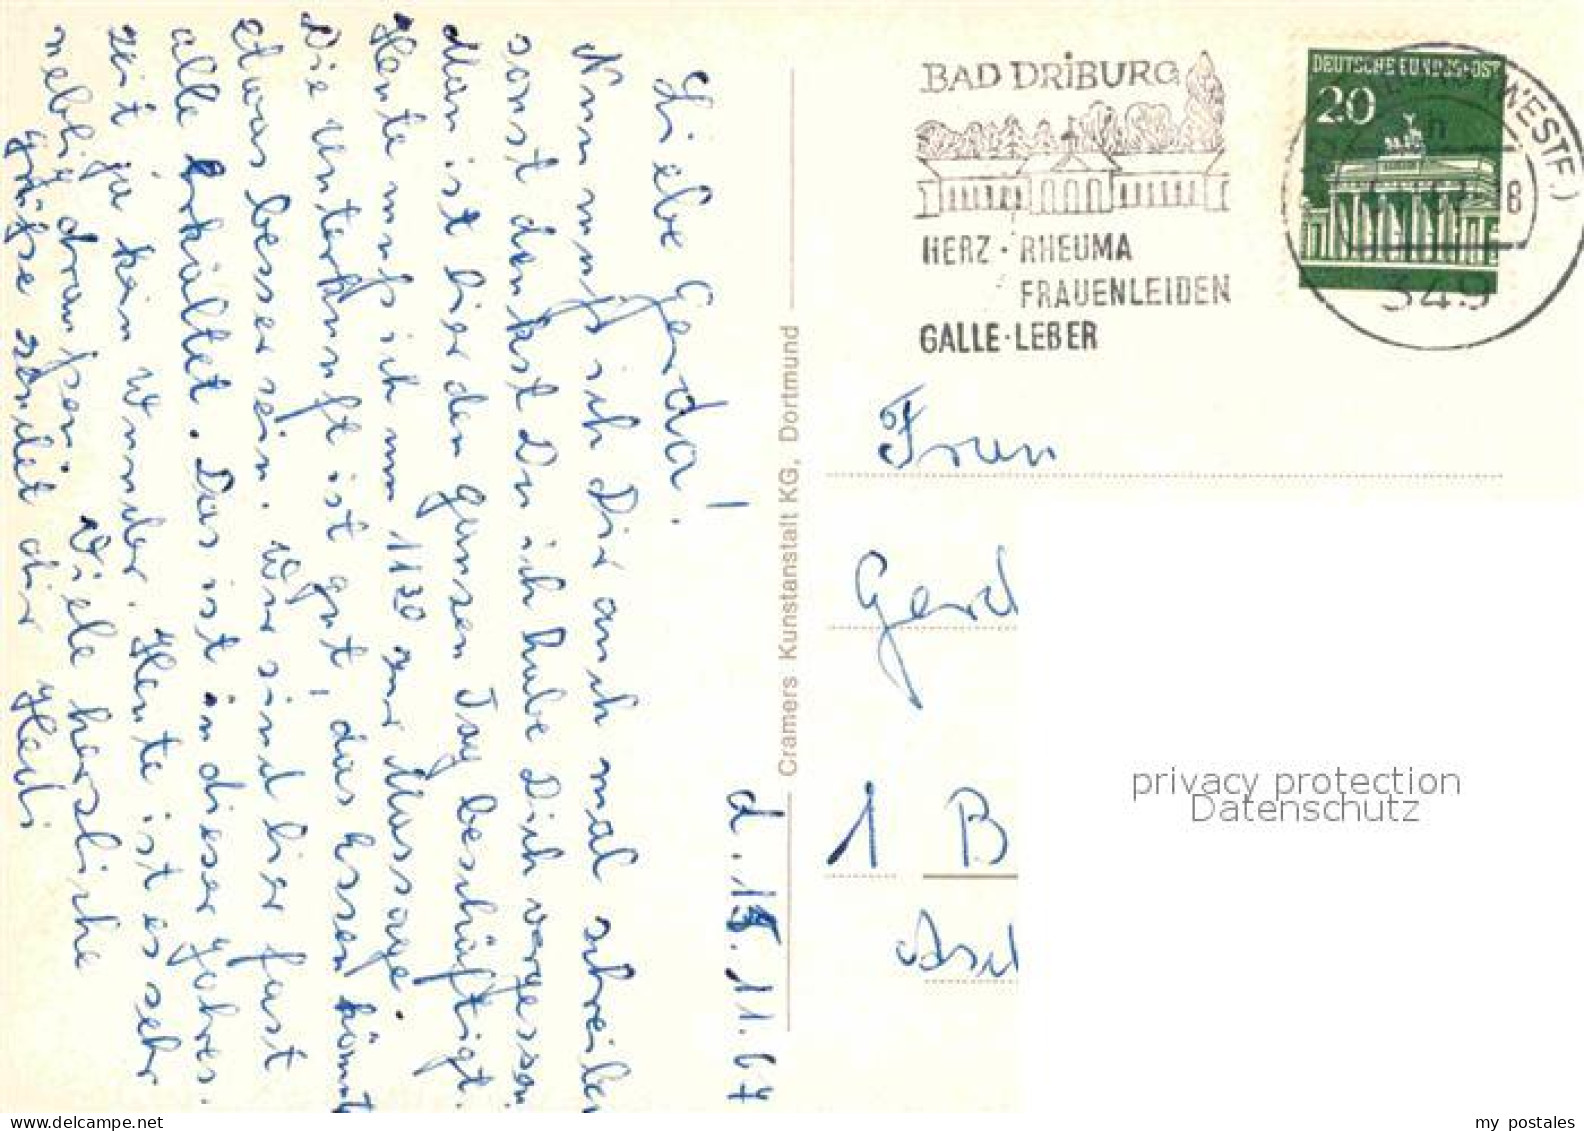 d. 15.11.67
Liebe Gerda!
Nun muß ich Dir auch mal schreiben
sonst denkst Du ich habe Dich vergessen.
Man ist hier den ganzen Tag beschäftigt.
Heute muß ich um 11 30 zur Massage.
Die Unterkunft ist gut, das Essen könnte
etwas besser sein. Wir sind hier fast
alle erkältet. Das ist in dieser Jahres.
zeit ja kein Wunder. Heute ist es sehr
neblig draußen. Viele herzliche
Grüße sendet dir Heidi
Cramers Kunstanstalt KG, Dortmund
BAD DRIBURG
HERZ · RHEUMA
FRAUENLEIDEN
GALLE · LEBER
DEUTSCHE BUNDESPOST
20
(WESTF.)
h
18
349
Frau
Gerd
1 B
Asch
privacy protection
Datenschutz
my postales